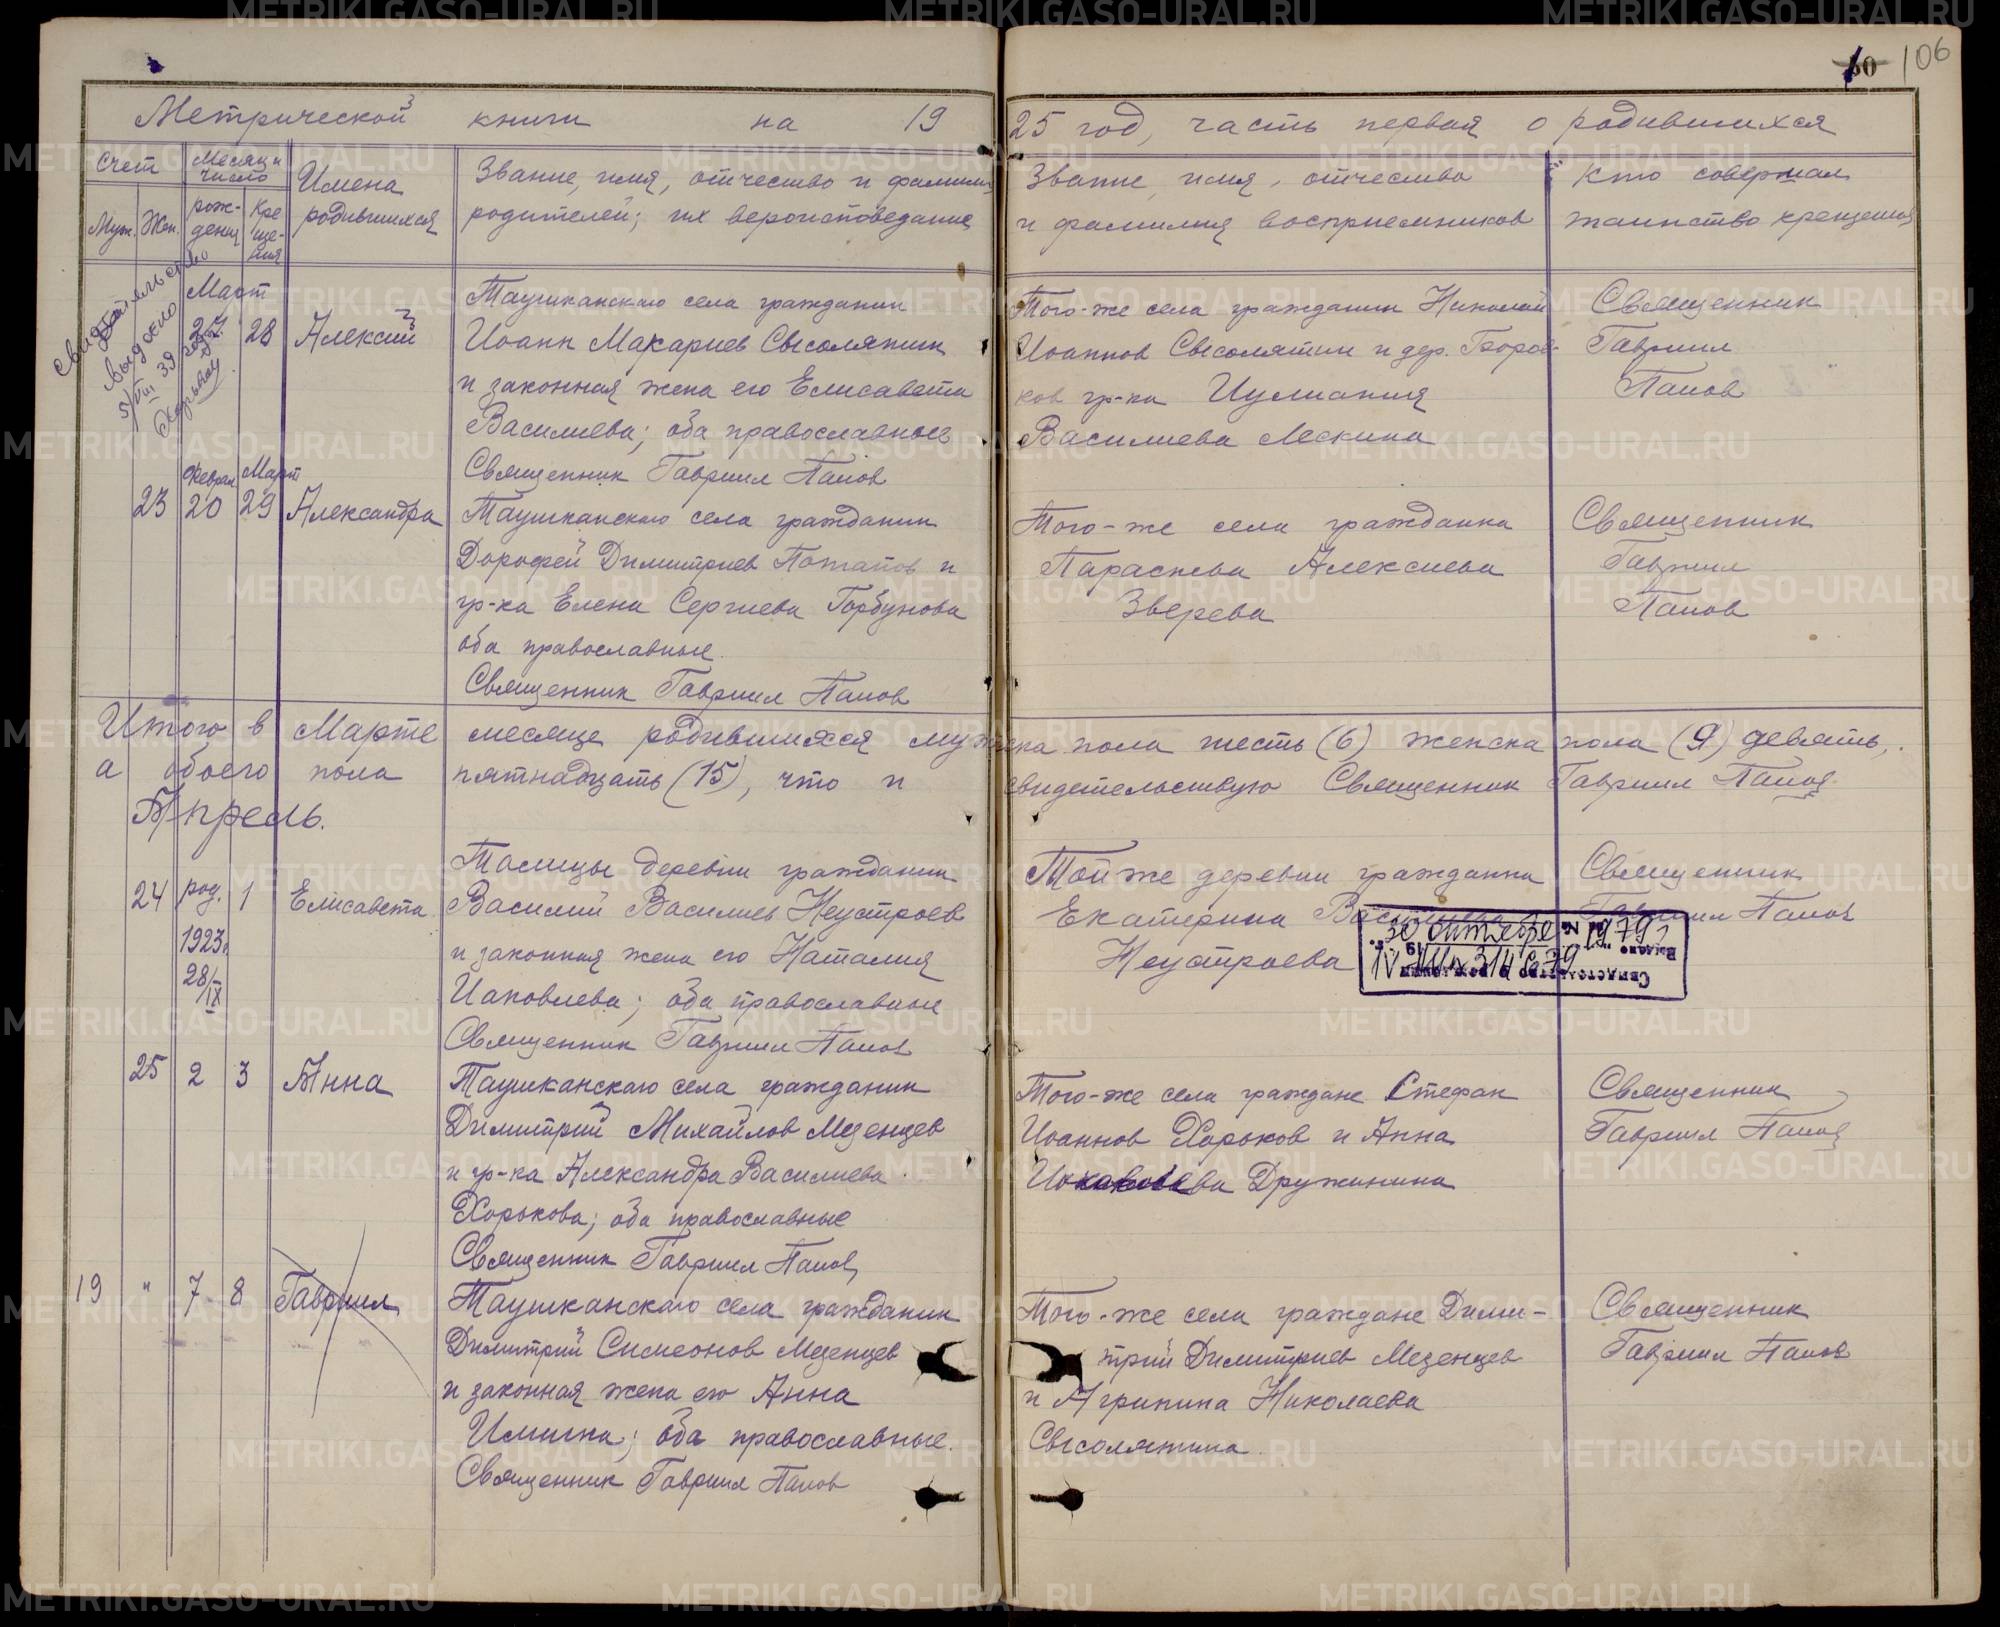 106
Метрической книги на 19 25 год, часть первая о родившихся
Счет
Муж. Жен.
Месяц и число
рождения
Крещения
Имена родившихся
Звание, имя, отчество и фамилии
родителей; их вероисповедание
Звание, имя, отчество
и фамилия восприемников
Кто совершал
таинство крещения
Свидетельство
выдано
5/VIII 39
Март
27 28 Алексий
Таушканскаго села гражданин
Иоанн Макариев Свсолятин
и законная жена его Елисавета
Василиева; оба православные
Священник Гавриил Попов
Того-же села гражданин Николай
Иоаннов Свсолятин и дер. Боров-
ков гр-ка Иулиания
Василиева Лескина
Священник
Гавриил
Попов
Феврал Март
23 20 29 Александра
Таушканскаго села гражданин
Дорофей Димитриев Потапов и
гр-ка Елена Сергиева Горбунова
оба православные.
Священник Гавриил Попов
Того-же села гражданка
Параскева Алексиева
Зверева
Священник
Гавриил
Попов
Итого в Марте месяце родившихся мужска пола шесть (6) женска пола (9) девять,
а обоего пола пятнадцать (15), что и свидетельствую Священник Гавриил Попов
Апрель.
24 род. 1 Елисавета
1923г.
28/IX
Талицы деревни гражданин
Василий Василиев Неустроев
и законная жена его Наталия
Иаковлева; оба православные
Священник Гавриил Попов
Той же деревни гражданка
Екатерина Василиева
Неустроева
Священник
Гавриил Попов
Свидетельство о рождении
Выдано
30 октября 1979
25 2 3 Анна
Таушканскаго села гражданин
Димитрий Михайлов Мезенцев
и гр-ка Александра Василиева
Хорькова; оба православные
Священник Гавриил Попов
Того-же села граждане Стефан
Иоаннов Хорьков и Анна
Иаковлева Дружинина
Священник
Гавриил Попов
19 " 7 8 Гавриил
Таушканскаго села гражданин
Димитрий Симеонов Мезенцев
и законная жена его Анна
Илиина; оба православные.
Священник Гавриил Попов
Того-же села граждане Дими-
трий Димитриев Мезенцев
и Агрипина Николаева
Свсолятина.
Священник
Гавриил Попов
METRIKI.GASO-URAL.RU